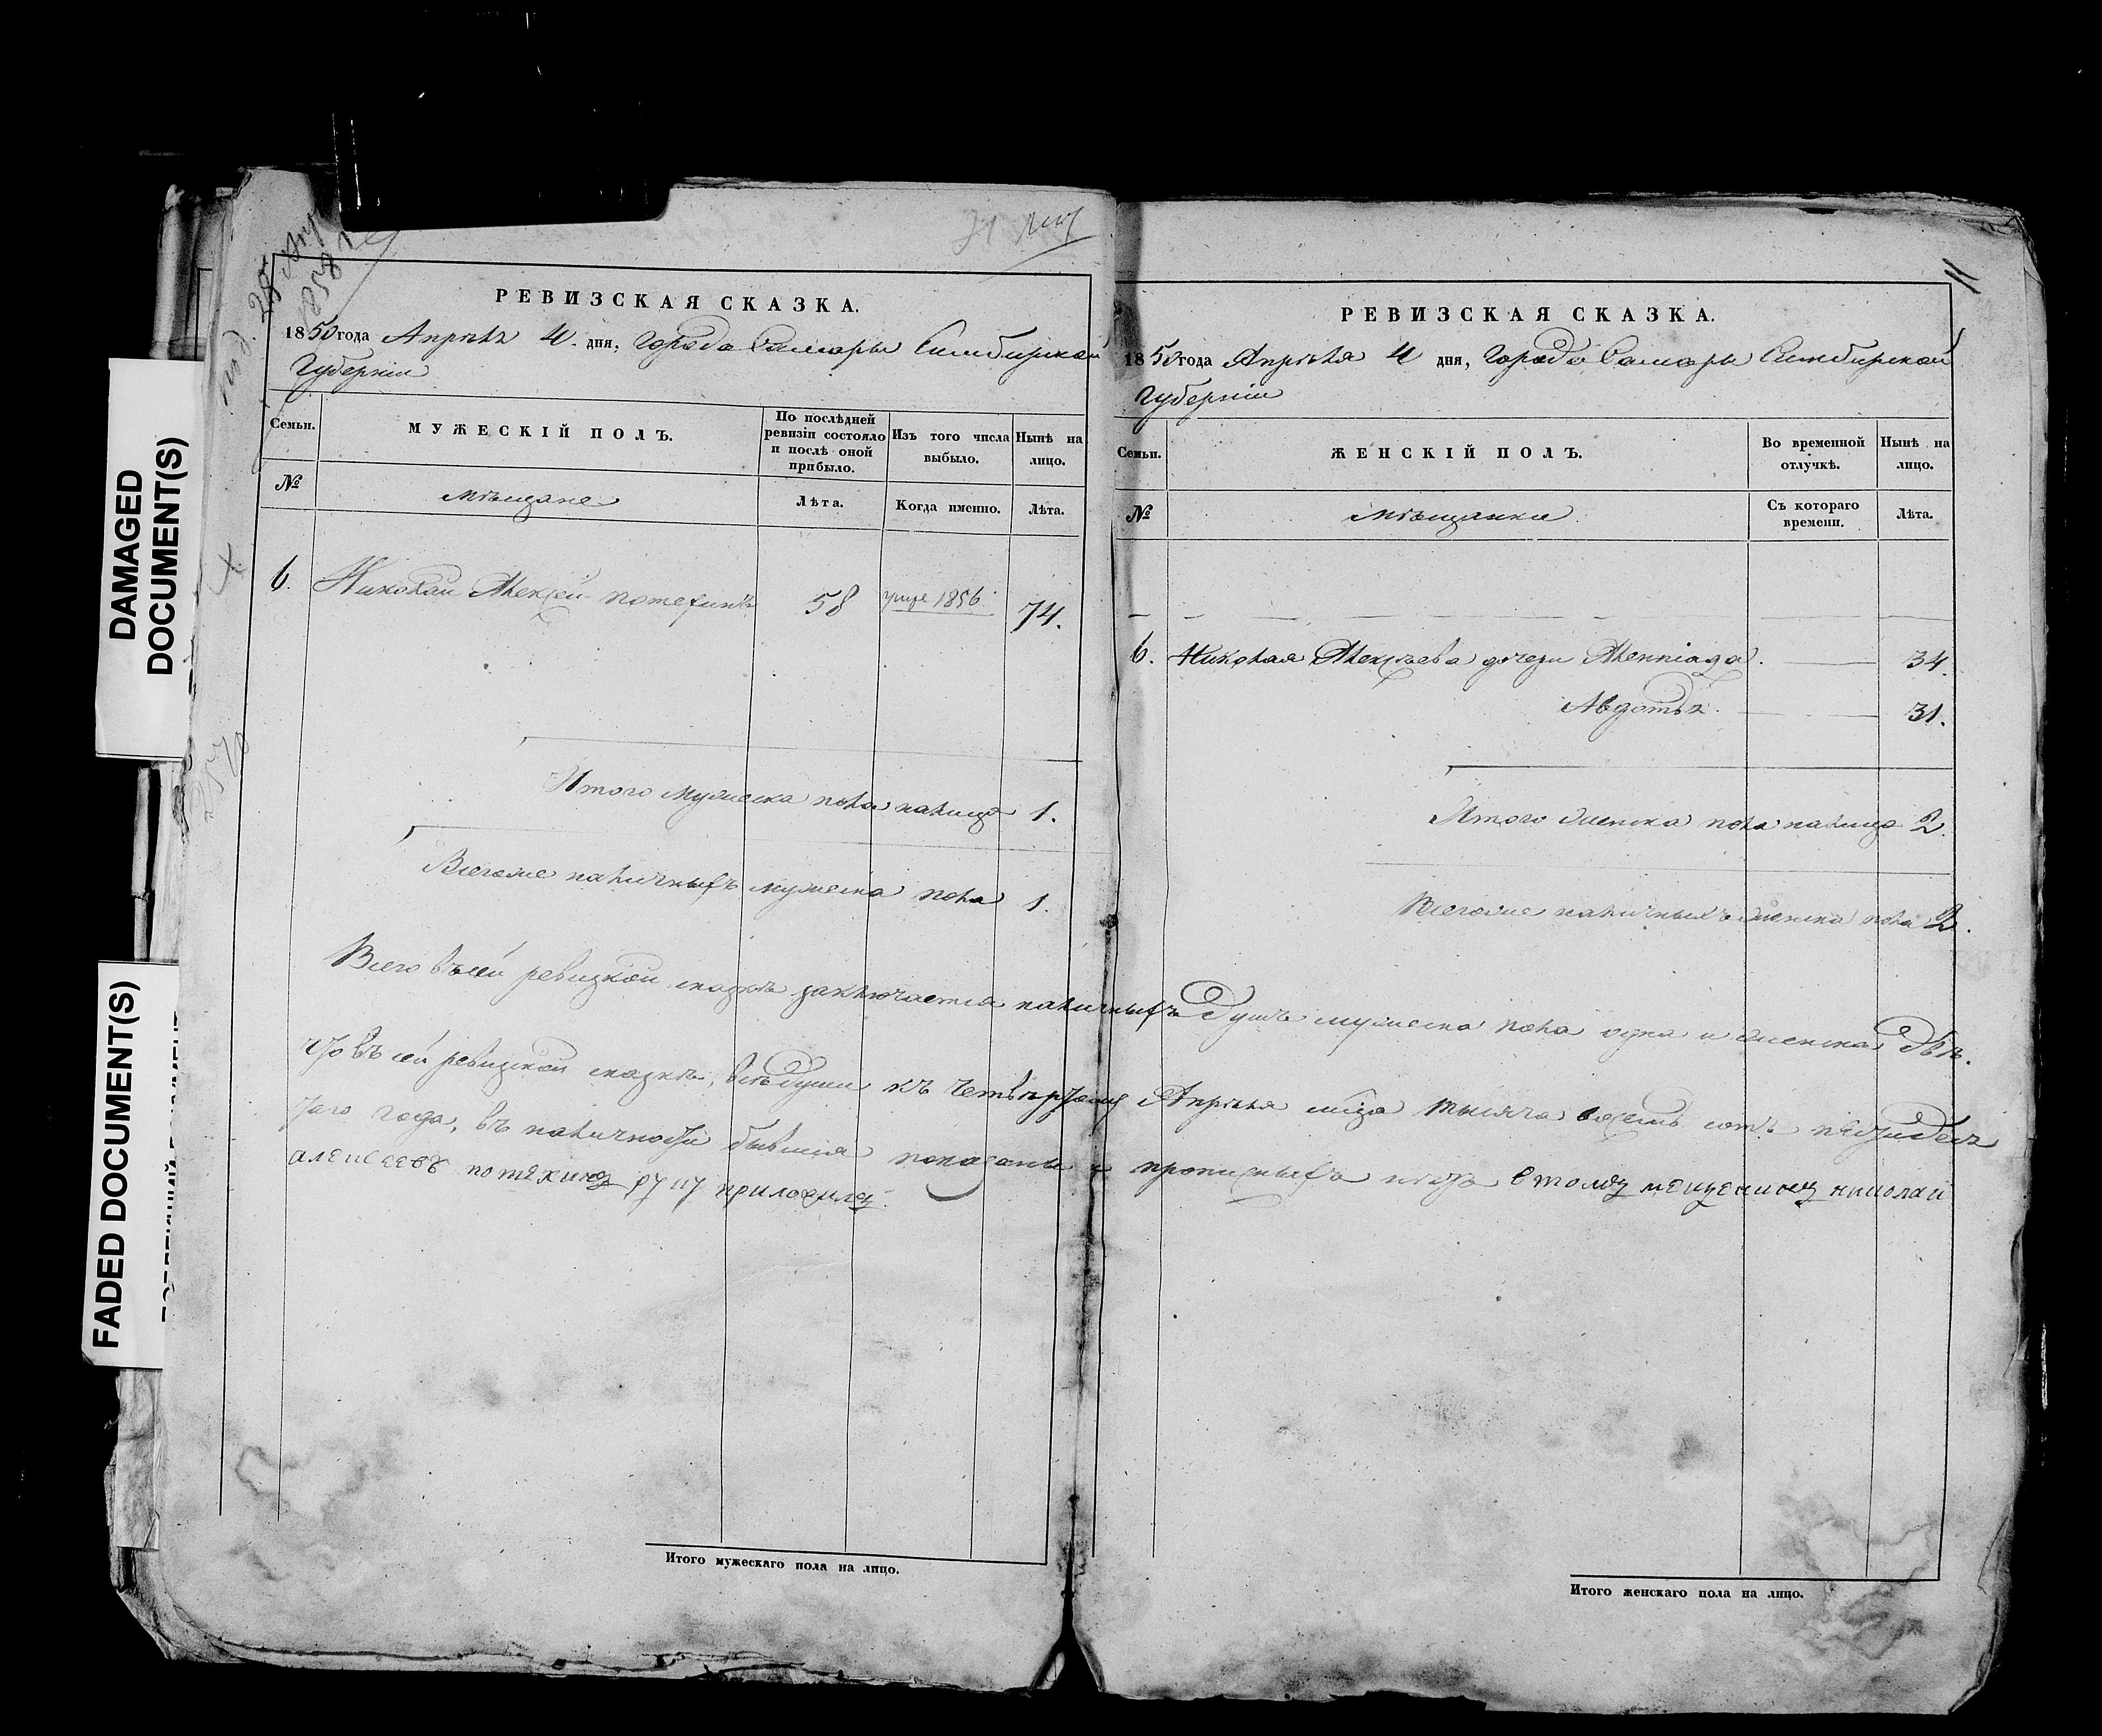 DAMAGED
DOCUMENT(S)
FADED DOCUMENT(S)
РЕВИЗСКАЯ СКАЗКА.
1850 года Апрѣля 4 дня, Города Самары Симбирской
Губерніи
Семьи.
МУЖЕСКІЙ ПОЛЪ.
По послѣдней ревизіи состояло и послѣ оной прибыло.
Изъ того числа выбыло.
Нынѣ на лицо.
№
Мѣщане
Лѣта.
Когда именно.
Лѣта.
6. Николай Алексѣй Потехинъ 58 74.
Итого мужеска пола налицо 1.
Всегоже наличныхъ мужеска пола 1.
11
РЕВИЗСКАЯ СКАЗКА.
1850 года Апрѣля 4 дня, Города Самары Симбирской
Губерніи
Семьи.
ЖЕНСКІЙ ПОЛЪ.
Во временной отлучкѣ.
Нынѣ на лицо.
№
Мѣщанки
Съ котораго времени.
Лѣта.
6. Николая Алексѣева дочери 34.
Авдотья 31.
Итого женска пола налицо 2.
Всегоже наличныхъ женска пола 2.
Всего въ сей ревизской сказкѣ заключается наличныхъ душъ мужеска пола одна и женска двѣ.
Что въ сей ревизской сказкѣ, всѣ души къ четвертому Апрѣля тысяча восемь сотъ пятидеся
таго года, въ наличности бывшия показаны и прописныхъ нѣтъ втомъ мещенинъ николаи
алексеевъ потехинъ руку приложилъ
Итого мужескаго пола на лицо.
Итого женскаго пола на лицо.